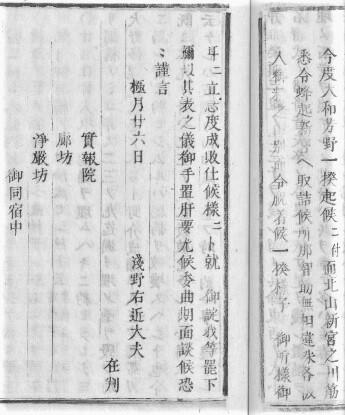 今度大和芳野一揆起候ニ付而北山新宮之川筋
悉令蜂起新宮へ取詰候所那智助無田違来各被
入 候 一 令 候一揆 子 御所様御
耳ニ立急度成敗仕候様ニト就 御諚我等罷下
彌以其表之儀御手置肝要尤候委曲期面談候恐
〻謹言
極月廿六日 淺野右近大夫
在判
實報院
廊坊
淨嚴坊
御同宿中